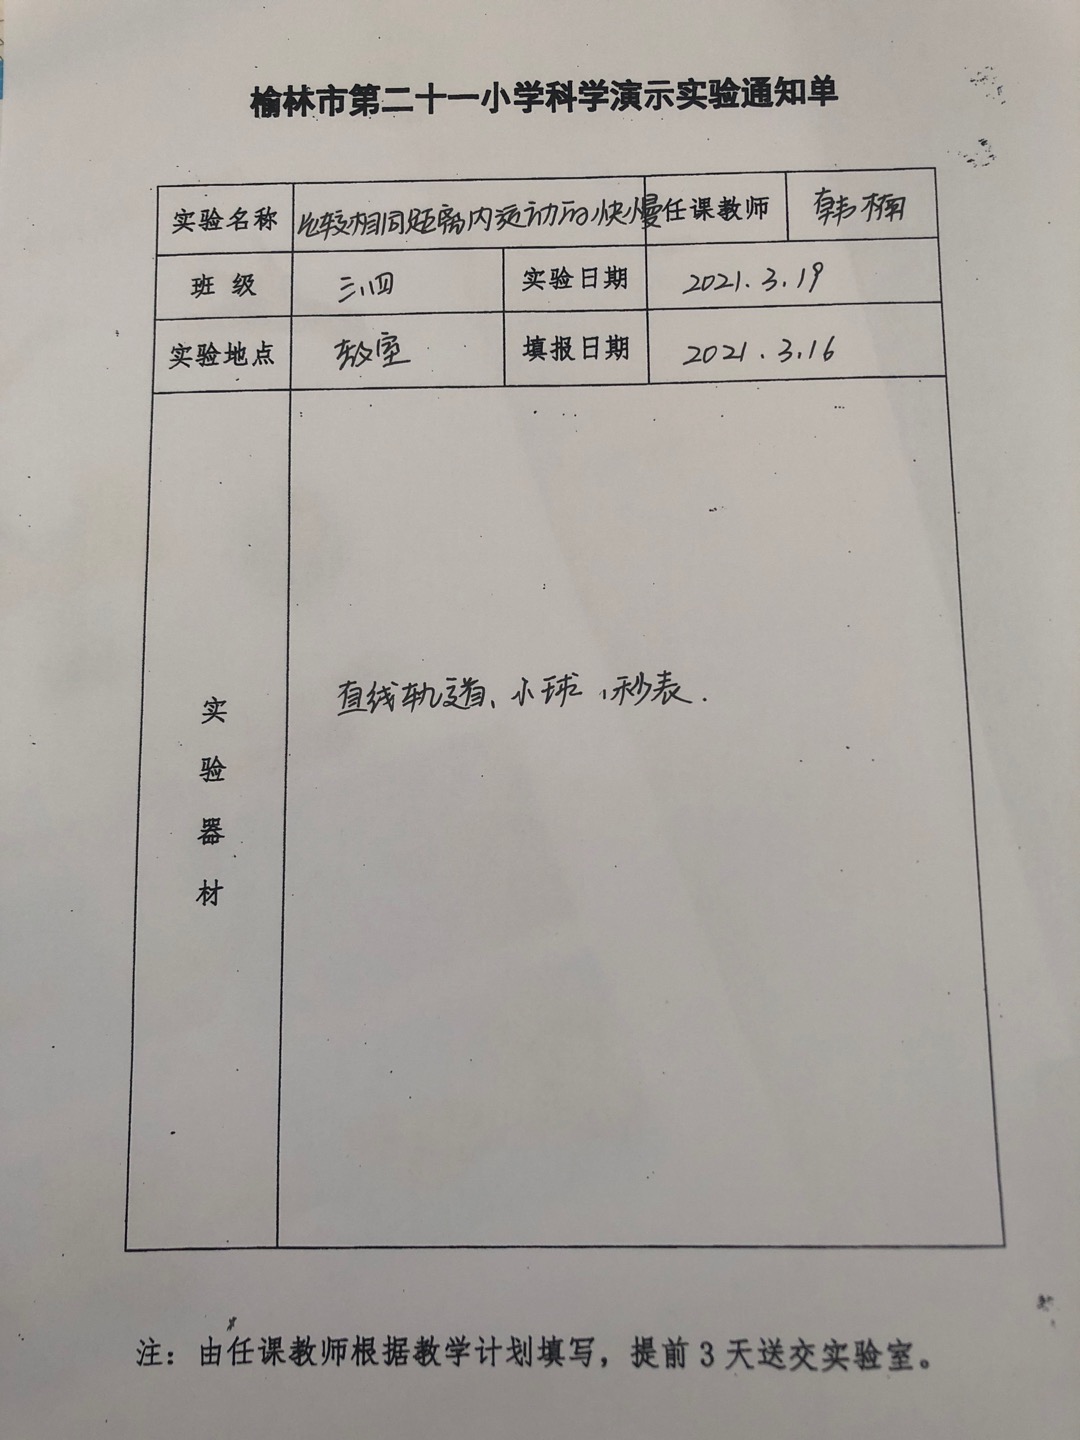 榆林市第二十一小学科学演示实验通知单
实验名称 比较相同距离内运动的快慢 任课教师 韩楠
班级 三、四 实验日期 2021.3.19
实验地点 教室 填报日期 2021.3.16
实验器材 直线轨道、小球、秒表.
注：由任课教师根据教学计划填写，提前3天送交实验室。